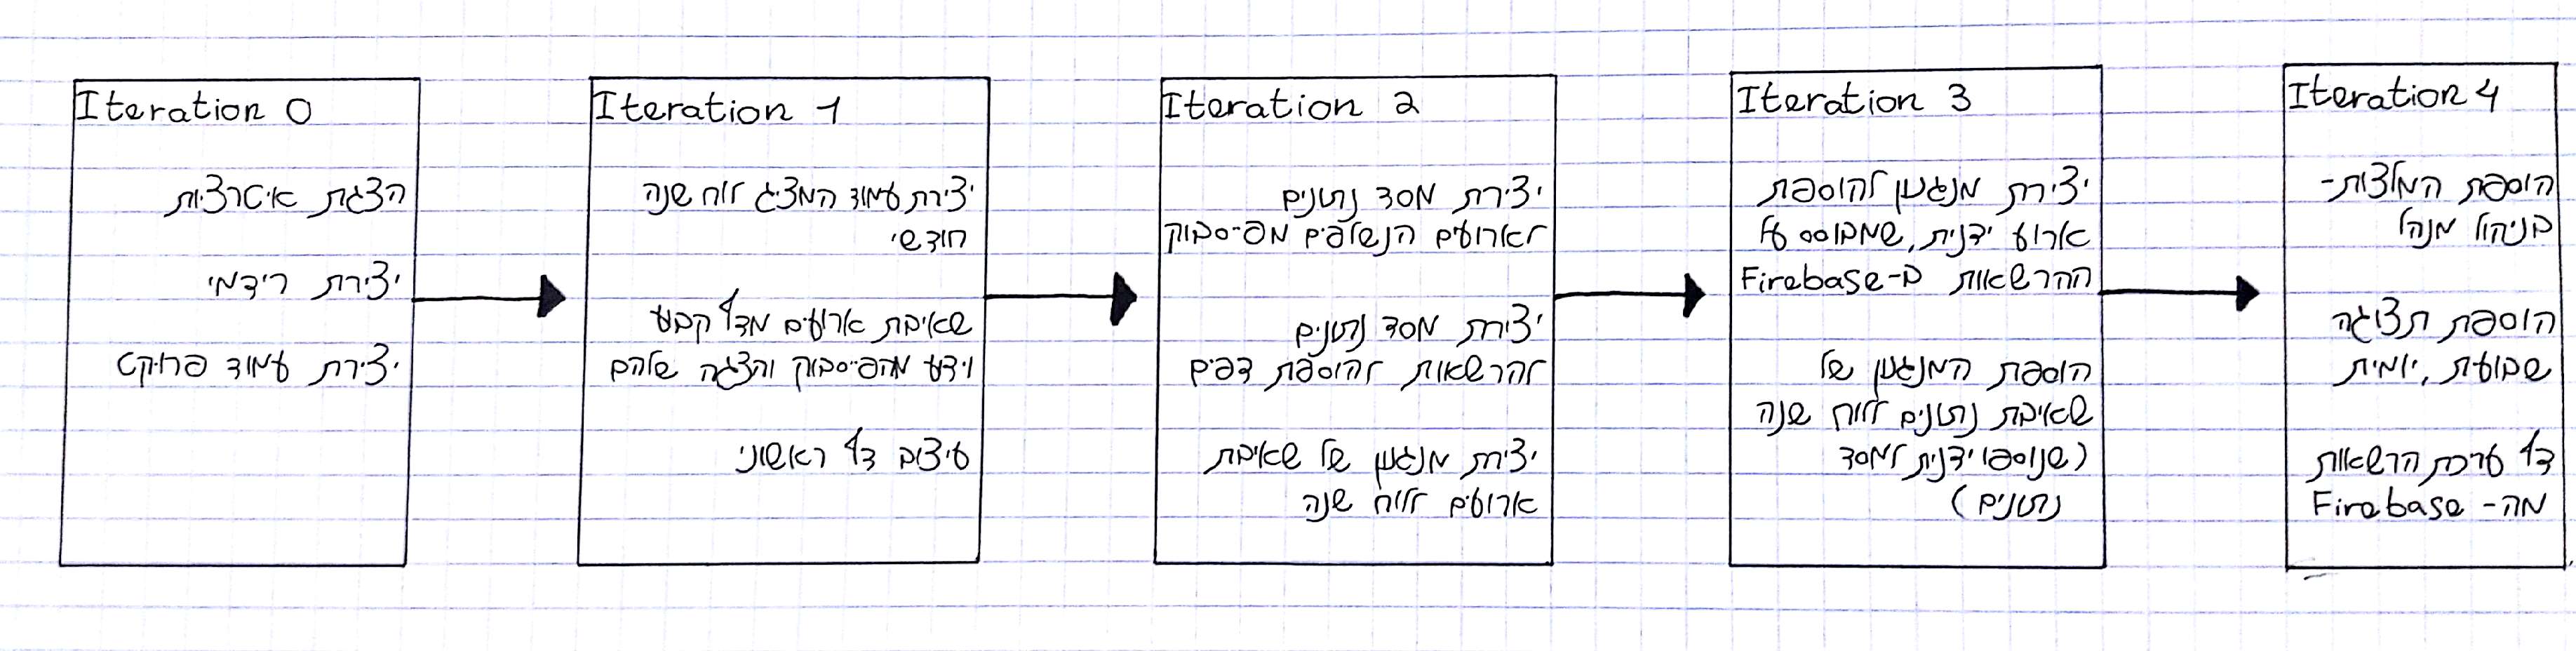 Iteration 0
הצגת איטרציות
יצירת רידמי
יצירת עמוד פרויקט
Iteration 1
יצירת עמוד המציג לוח שנה
חודשי
שאיבת ארועים מדף קבוע
וידע מהפייסבוק והצגה שלהם
עיצוב דף ראשוני
Iteration 2
יצירת מסד נתונים
לארועים הנשלפים מפייסבוק
יצירת מסד נתונים
להרשאות להוספת דפים
יצירת מנגנון של שאיבת
ארועים ללוח שנה
Iteration 3
יצירת מנגנון להוספת
ארוע ידנית, שמבוסס על
ההרשאות ב-Firebase
הוספת המנגנון של
שאיבת נתונים ללוח שנה
(שנוספו ידנית למסד
נתונים)
Iteration 4
הוספת המלצות-
בניהול מנהל
הוספת תצוגה
שבועית, יומית
דף ערכת הרשאות
מה- Firebase